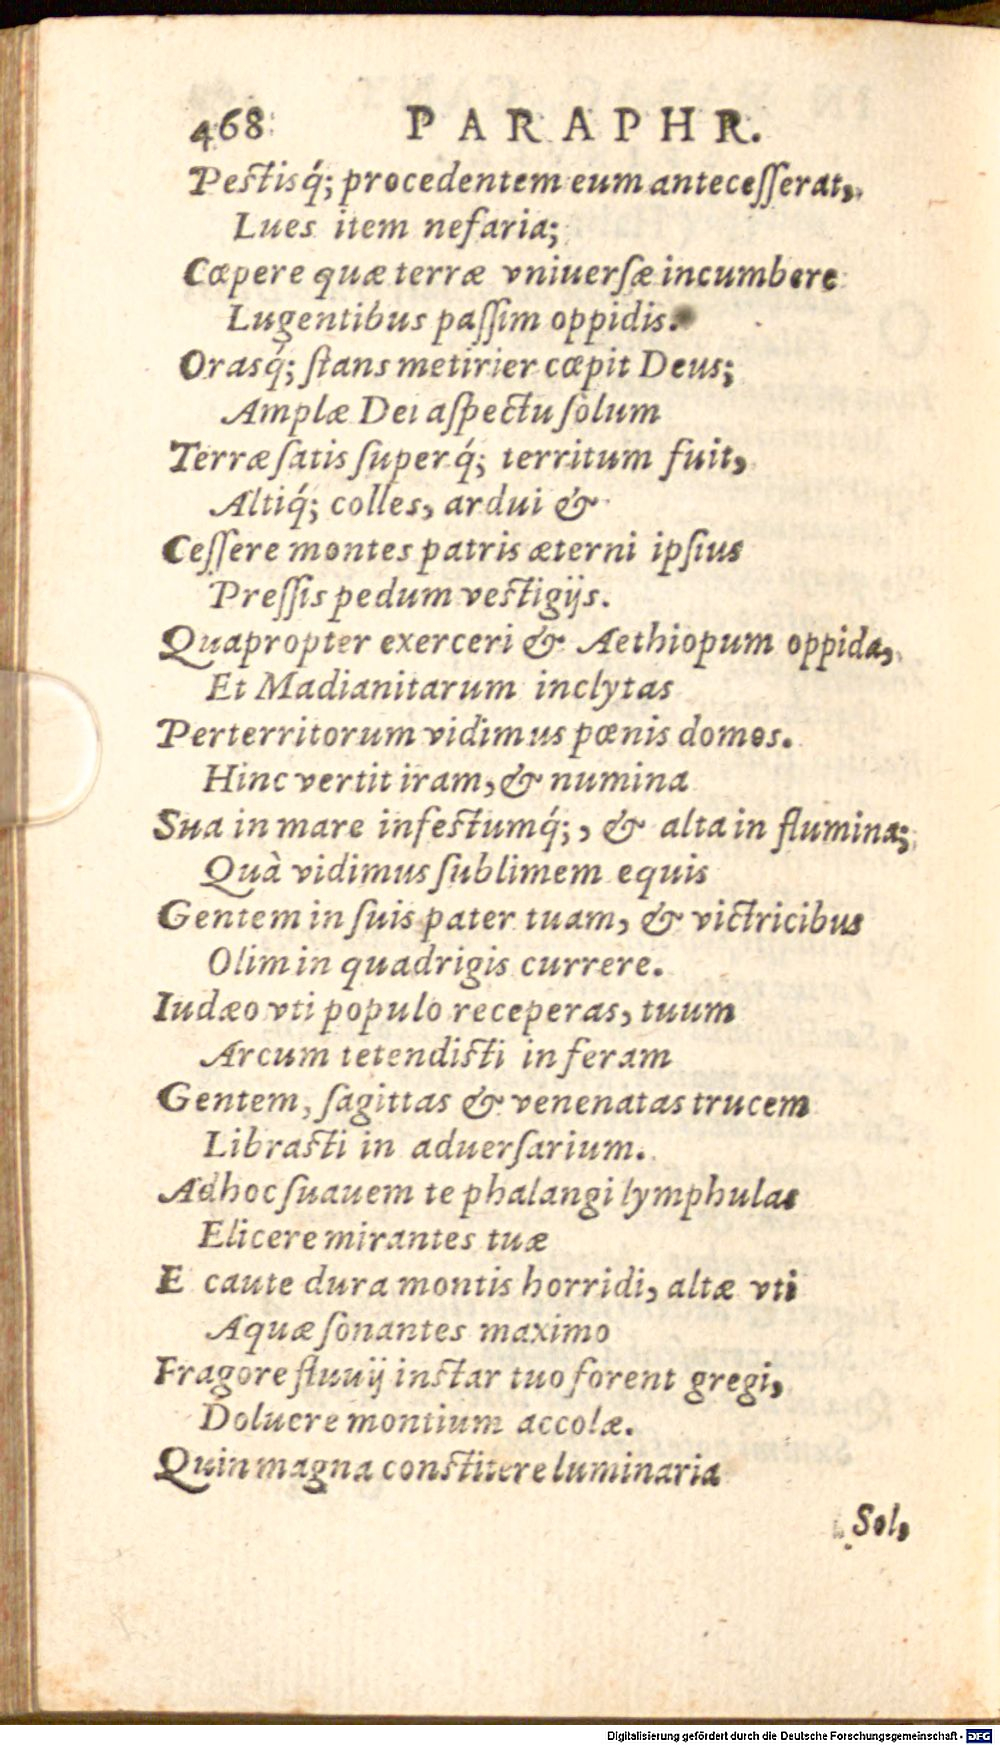 468 PARAPHR.
Pestisq́; procedentem eum antecesserat,
Lues item nefaria;
Cœpere quæ terræ vniuersæ incumbere
Lugentibus passim oppidis.
Orasq́; stans metirier cœpit Deus;
Amplæ Dei aspectu solum
Terræ satis superq́; territum fuit,
Altiq́; colles, ardui &
Cessere montes patris æterni ipsius
Pressis pedum vestigijs.
Quapropter exerceri & Aethiopum oppida,
Et Madianitarum inclytas
Perterritorum vidimus pœnis domos.
Hinc vertit iram, & numina
Sua in mare infestumq́;, & alta in flumina;
Quà vidimus sublimem equis
Gentem in suis pater tuam, & victricibus
Olim in quadrigis currere.
Iudæo vti populo receperas, tuum
Arcum tetendisti in feram
Gentem, sagittas & venenatas trucem
Librasti in aduersarium.
Adhoc suauem te phalangi lymphulas
Elicere mirantes tuæ
E caute dura montis horridi, altæ vti
Aquæ sonantes maximo
Fragore fluuij instar tuo forent gregi,
Doluere montium accolæ.
Quin magna constitere luminaria
Sol,
Digitalisierung gefördert durch die Deutsche Forschungsgemeinschaft - DFG